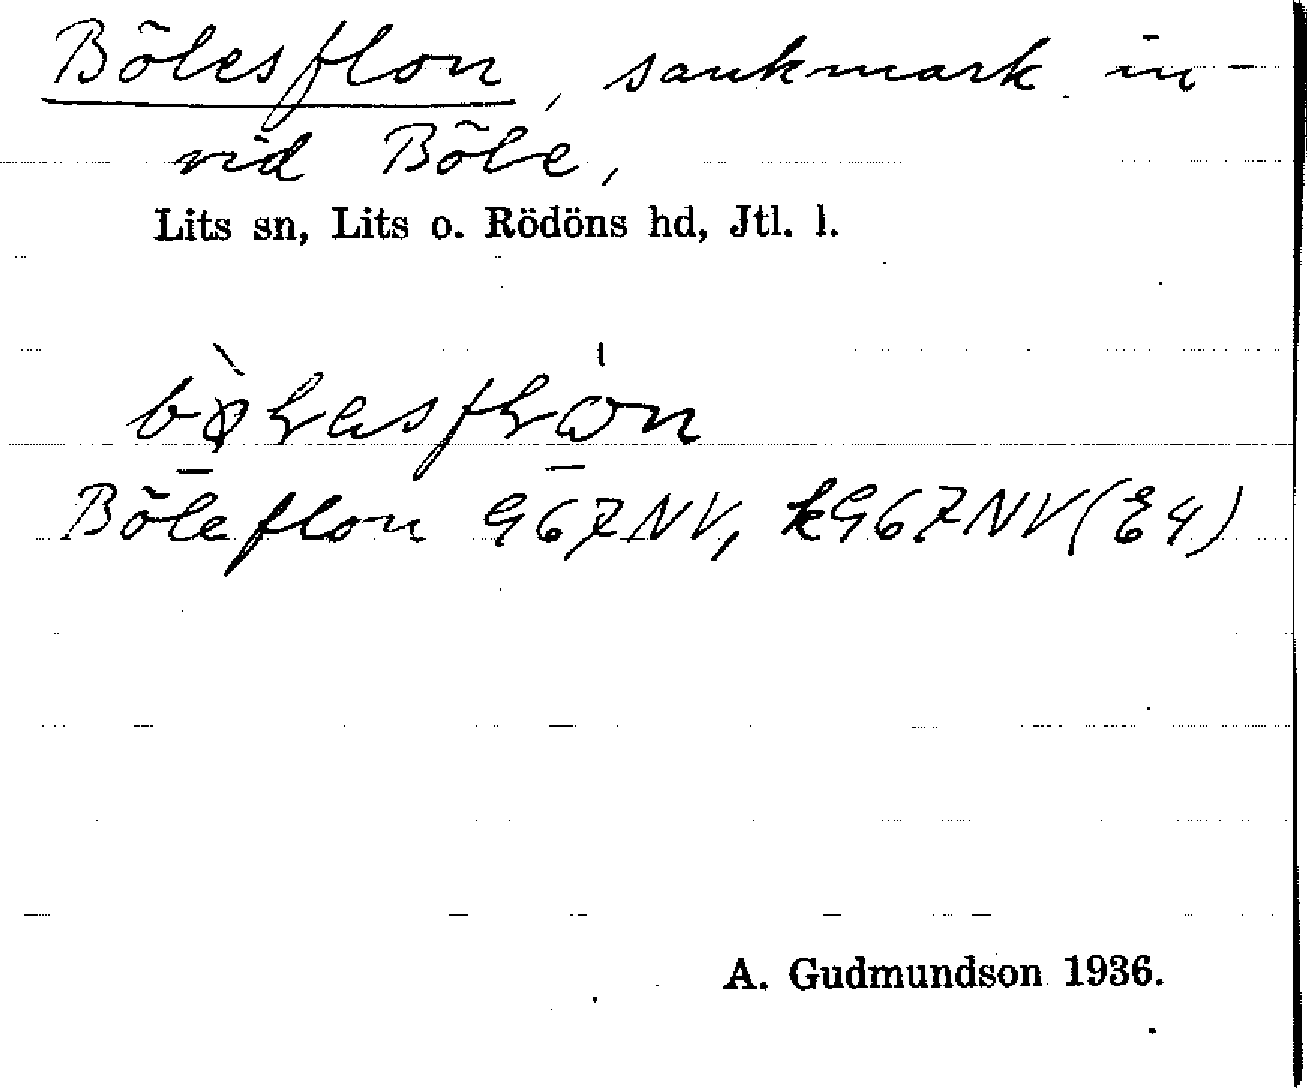 Bölesflon, sankmark in-
vid Böle,
Lits sn, Lits o. Rödöns hd, Jtl. l.
Böleflon G67NV, kG67NV (E4)
A. Gudmundson 1936.